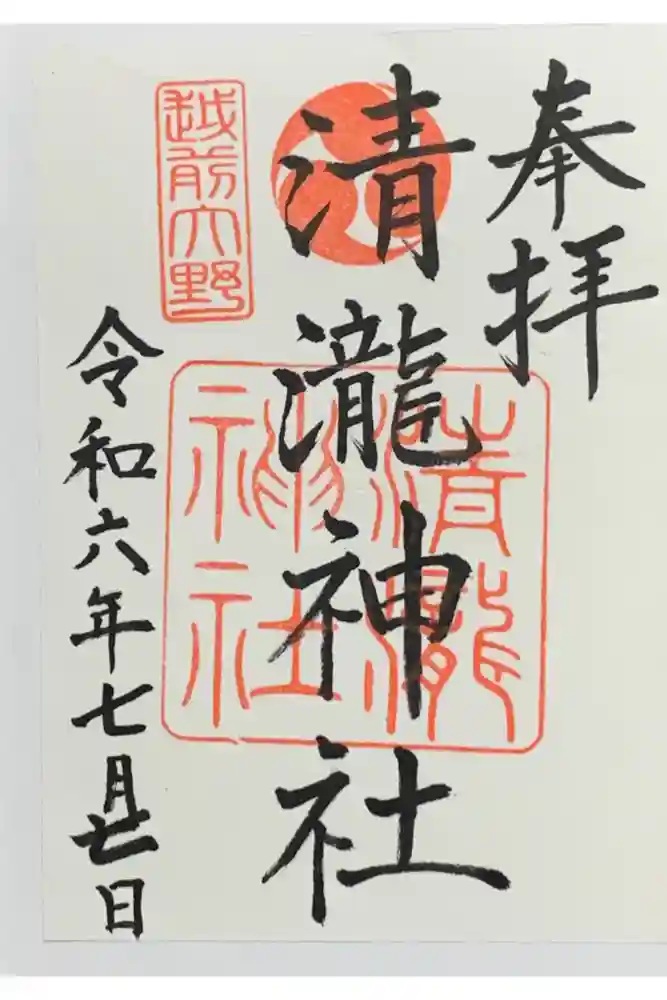 奉拝
清瀧神社
清瀧
神社
越前大野
令和六年七月廿日